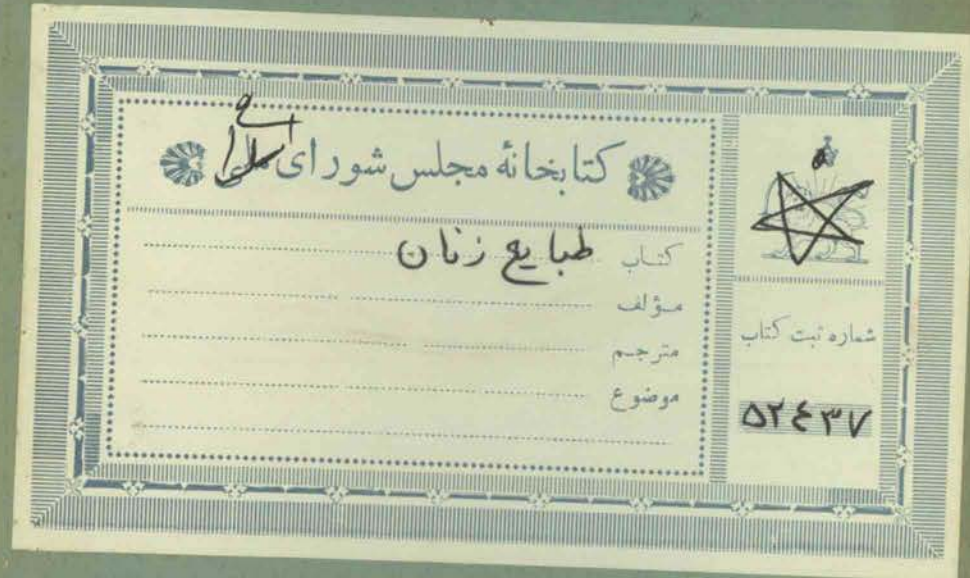 کتابخانهٔ مجلس شورای ملی
کتاب طبایع زنان
مؤلف
مترجم
موضوع
شماره ثبت کتاب
۵۲۴۳۷